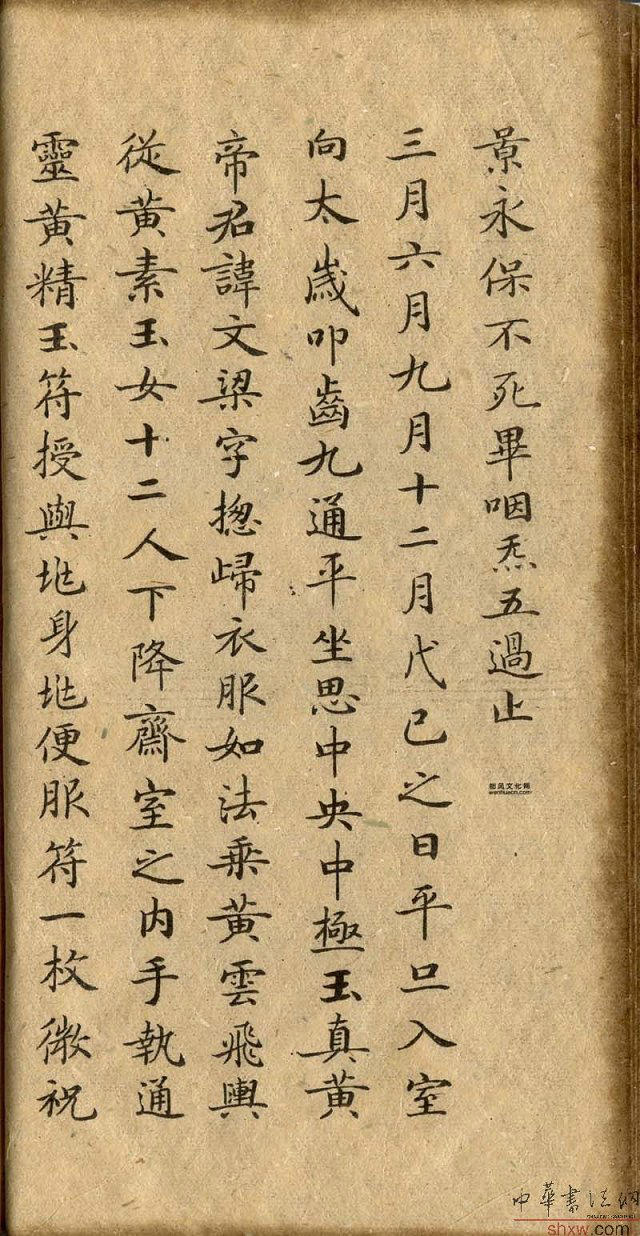 景永保不死畢咽炁五過止
三月六月九月十二月戊己之日平旦入室
向太歲叩齒九通平坐思中央中極玉真黃
帝君諱文梁字揔歸衣服如法乘黃雲飛輿
從黃素玉女十二人下降齋室之内手執通
靈黃精玉符授與地身地便服符一枚微祝
中華書法網
shxw.com